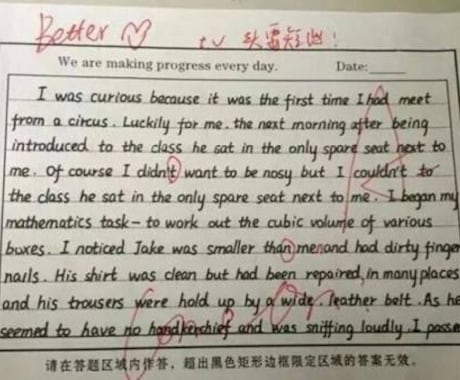 Better
We are making progress every day. Date:
I was curious because it was the first time I had meet
from a circus. Luckily for me. the next morning after being
introduced to the class he sat in the only spare seat next to
me. Of course I didn't want to be nosy but I couldn't to
the class he sat in the only spare seat next to me. I began my
mathematics task- to work out the cubic volume of various
boxes. I noticed Jake was smaller than me and had dirty finger
nails. His shirt was clean but had been repaired, in many places
and his trousers were hold up by a wide, leather belt. As he
seemed to have no handkerchief and was sniffing loudly. I passe
请在答题区域内作答，超出黑色矩形边框限定区域的答案无效。